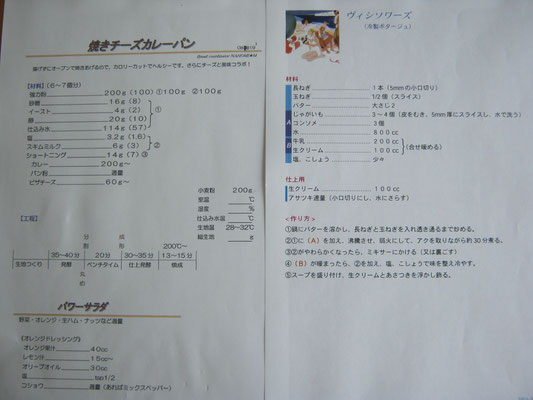 焼きチーズカレーパン
揚げずにオーブンで焼きあげるので、カロリーカットでヘルシーです。さらにチーズと美味コラボ！
【材料】（6～7個分）
強力粉 200g（100）①100g ②100g
砂糖 16g（8）
イースト 4g（2） ①
卵 20g（10）
仕込み水 114g（57）
塩 3.2g（1.6）
スキムミルク 6g（3） ②
ショートニング 14g（7）③
カレー 200g～
パン粉 適量
ピザチーズ 60g～
小麦粉 200g
室温 ℃
湿度 %
仕込み水温 ℃
生地温 28～32℃
総生地 g
【工程】
分割 成形
35～40分 20分 30～35分 200℃～ 13～15分
生地つくり 発酵 ベンチタイム 仕上発酵 焼成
丸め
パワーサラダ
野菜・オレンジ・生ハム・ナッツなど適量
《オレンジドレッシング》
オレンジ果汁 40cc
レモン汁 15cc～
オリーブオイル 30cc
塩 tsp1/2
コショウ 適量（あればミックスペッパー）
ヴィシソワーズ
（冷製ポタージュ）
材料
長ねぎ 1本（5mmの小口切り）
玉ねぎ 1/2個（スライス）
バター 大さじ2
A
じゃがいも 3～4個（皮をむき、5mm厚にスライスし、水で洗う）
コンソメ 3個
水 800cc
B
牛乳 200cc
生クリーム 100cc （合せ暖める）
塩、こしょう 少々
仕上用
生クリーム 100cc
アサツキ適量（小口切りにし、水にさらす）
＜作り方＞
①鍋にバターを溶かし、長ねぎと玉ねぎを入れ透き通るまで炒める。
②①に（A）を加え、沸騰させ、弱火にして、アクを取りながら約30分煮る。
③②がやわらかくなったら、ミキサーにかける（又は裏ごす）
④（B）が暖まったら、②を加え、塩、こしょうで味を整え冷やす。
⑤スープを盛り付け、生クリームとあさつきを浮かし飾る。